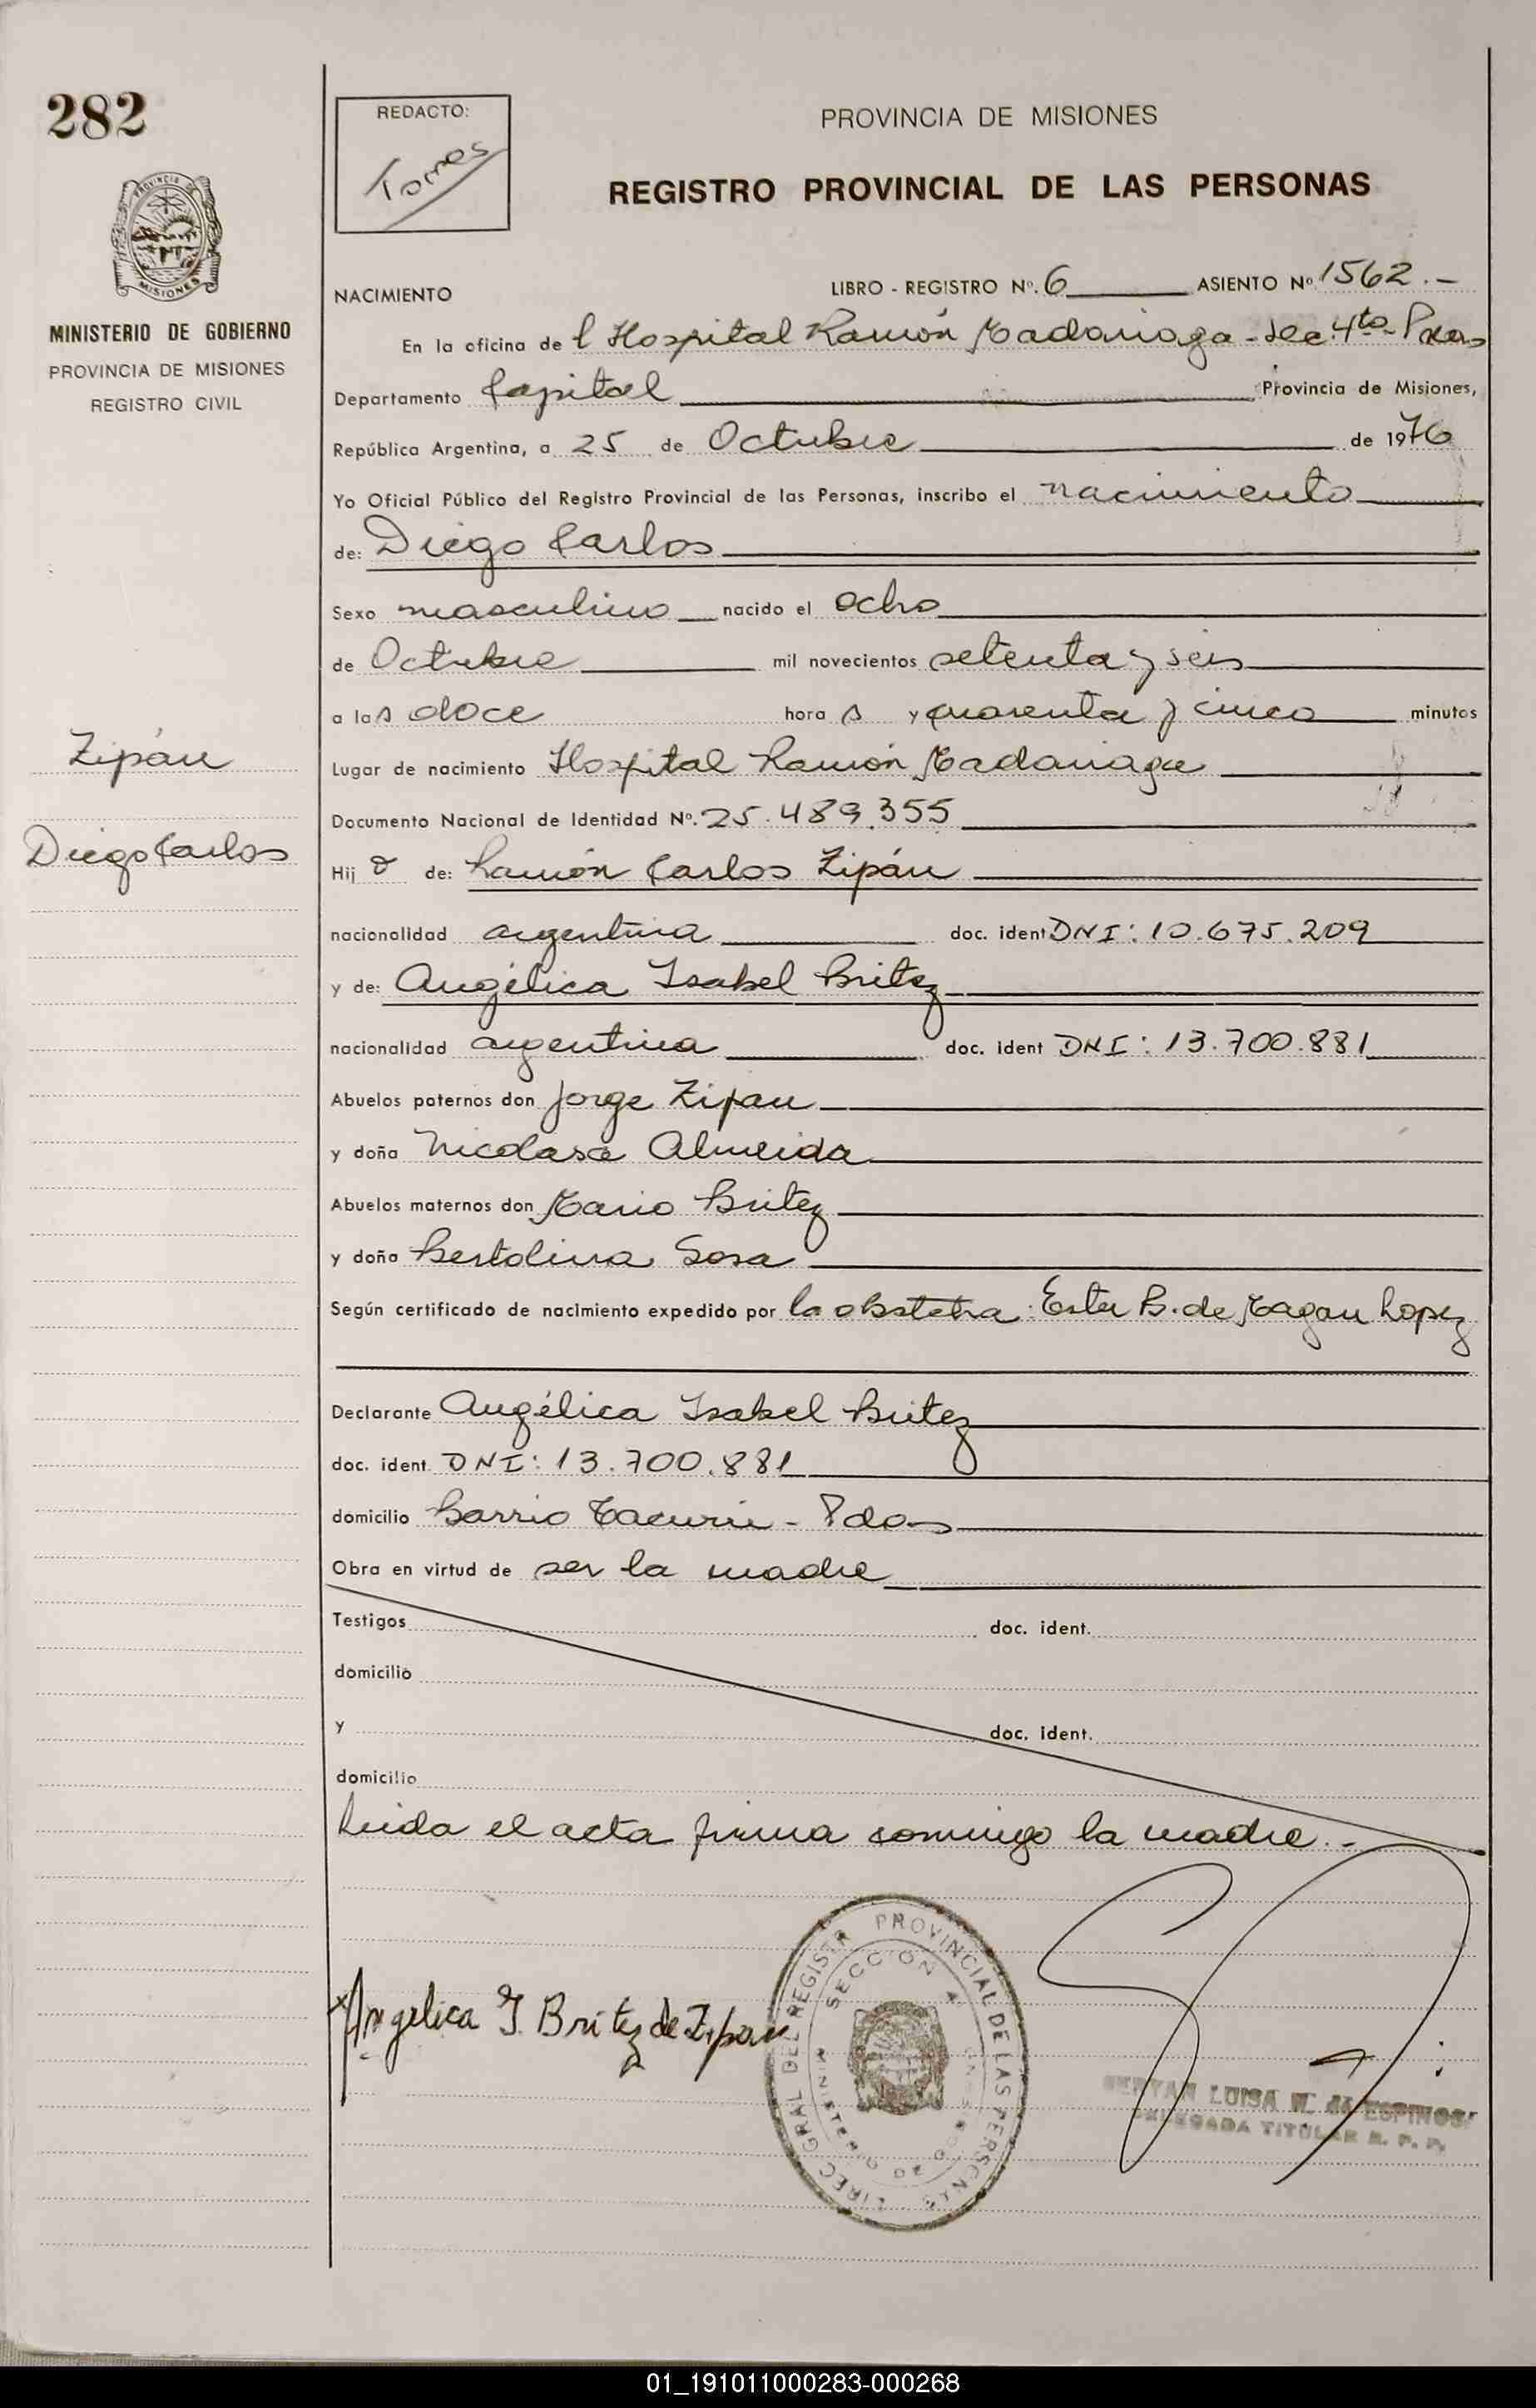 282
REDACTO:
Torres
PROVINCIA DE MISIONES
REGISTRO PROVINCIAL DE LAS PERSONAS
PROVINCIA DE
MISIONES
MINISTERIO DE GOBIERNO
PROVINCIA DE MISIONES
REGISTRO CIVIL
NACIMIENTO
LIBRO - REGISTRO Nº. 6 ASIENTO Nº 1562.-
En la oficina de l Hospital Ramón Madariaga - Sec. 4ta - Pdas
Departamento Capital Provincia de Misiones,
República Argentina, a 25 de Octubre de 1976
Yo Oficial Público del Registro Provincial de las Personas, inscribo el nacimiento
de: Diego Carlos
Sexo masculino nacido el ocho
de Octubre mil novecientos setenta y seis
a las doce horas y cuarenta y cinco minutos
Zipán
Lugar de nacimiento Hospital Ramón Madariaga
Documento Nacional de Identidad Nº. 25.489.355
Diego Carlos
Hijo de: Ramón Carlos Zipán
nacionalidad argentina doc. ident DNI: 10.675.209
y de: Angélica Isabel Britez
nacionalidad argentina doc. ident DNI: 13.700.881
Abuelos paternos don Jorge Zipan
y doña Nicolasa Almeida
Abuelos maternos don Mario Britez
y doña Bertolina Sosa
Según certificado de nacimiento expedido por la obstetra: Ester B. de Magan Lopez
Declarante Angélica Isabel Britez
doc. ident. DNI: 13.700.881
domicilio Barrio Tacurú - Pdas
Obra en virtud de ser la madre
Testigos doc. ident.
domicilio
y doc. ident.
domicilio
Leida el acta firma conmigo la madre.-
Angelica I. Britez de Zipan
DIREC GRAL DEL REGISTR PROVINCIAL DE LAS PERSONAS
SECCION
MINISTERIO DE GOBIERNO
LUISA M. de ESPINOSA
DELEGADA TITULAR R. P. P.
01_191011000283-000268